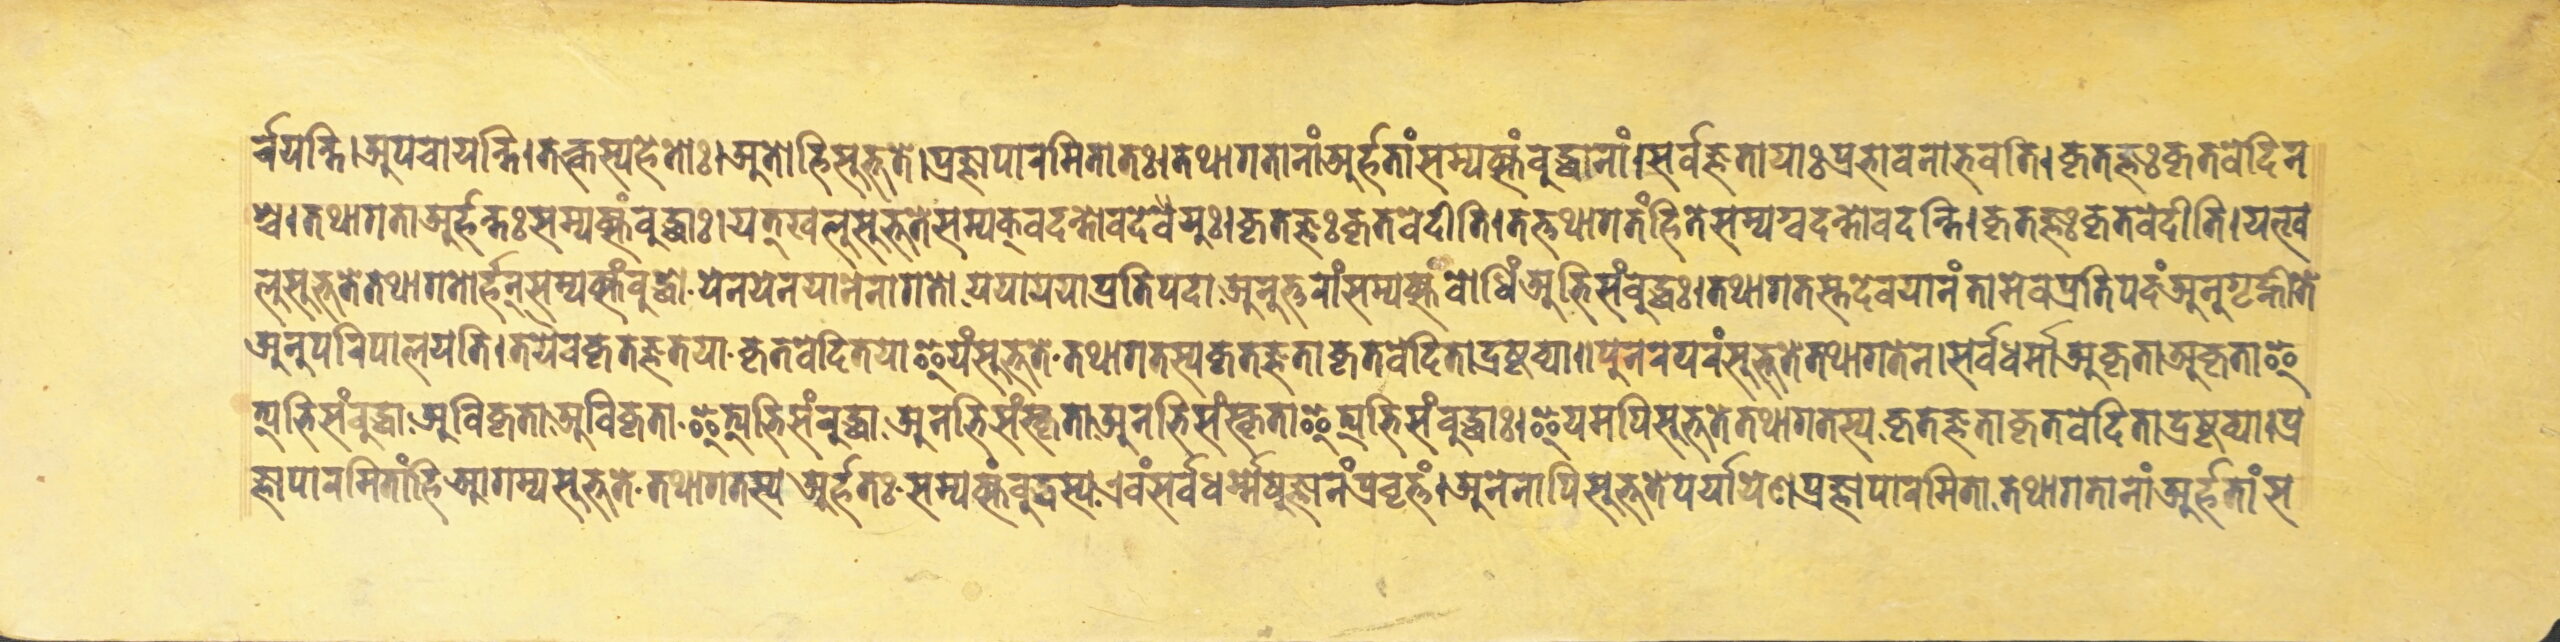 र्चयन्ति।अपचायन्ति।तत्कस्यहेतोः।अतोहिसुभूते।प्रज्ञापारमितातः।तथागतानांअर्हतांसम्यक्संबुद्धानां।सर्वज्ञतायाःप्रभावनाभवति।कृतज्ञःकृतवेदिन
श्च।तथागताअर्हन्तःसम्यक्संबुद्धाः।यत्खलुसुभूतेसम्यक्वदन्तोवदेयुः।कृतज्ञःकृतवेदीति।तत्तथागतंहितेसम्यग्वदन्तोवदन्ति।कृतज्ञःकृतवेदीति।यत्ख
लुसुभूतेतथागतोर्हन्सम्यक्संबुद्धो.येनयेनयानेनागतो.ययाययाप्रतिपदा.अनुत्तरांसम्यक्संबोधिंअभिसंबुद्धः।तथागतस्तदेवयानंतामेवप्रतिपदंअनुगृह्णीते
अनुपरिपालयति।तयैवकृतज्ञतया.कृतवेदितयाइयंसुभूते.तथागतस्यकृतज्ञताकृतवेदिताद्रष्टव्या॥पुनरपरंसुभूतेतथागतेन।सर्वधर्माअकृताअकृताइ
त्यभिसंबुद्धा.अविकृता.अविकृता.इत्यभिसंबुद्धा.अनभिसंस्कृता.अनभिसंस्कृताइत्यभिसंबुद्धाः।इयमपिसुभूतेतथागतस्य.कृतज्ञताकृतवेदिताद्रष्टव्या।प्र
ज्ञापारमितांहिआगम्यसुभूते.तथागतस्यअर्हतः.सम्यक्संबुद्धस्य.एवंसर्वधर्मेषुज्ञानंप्रवृत्तं।अनेनापिसुभूतेपर्यायेणप्रज्ञापारमिता.तथागतानांअर्हतांस